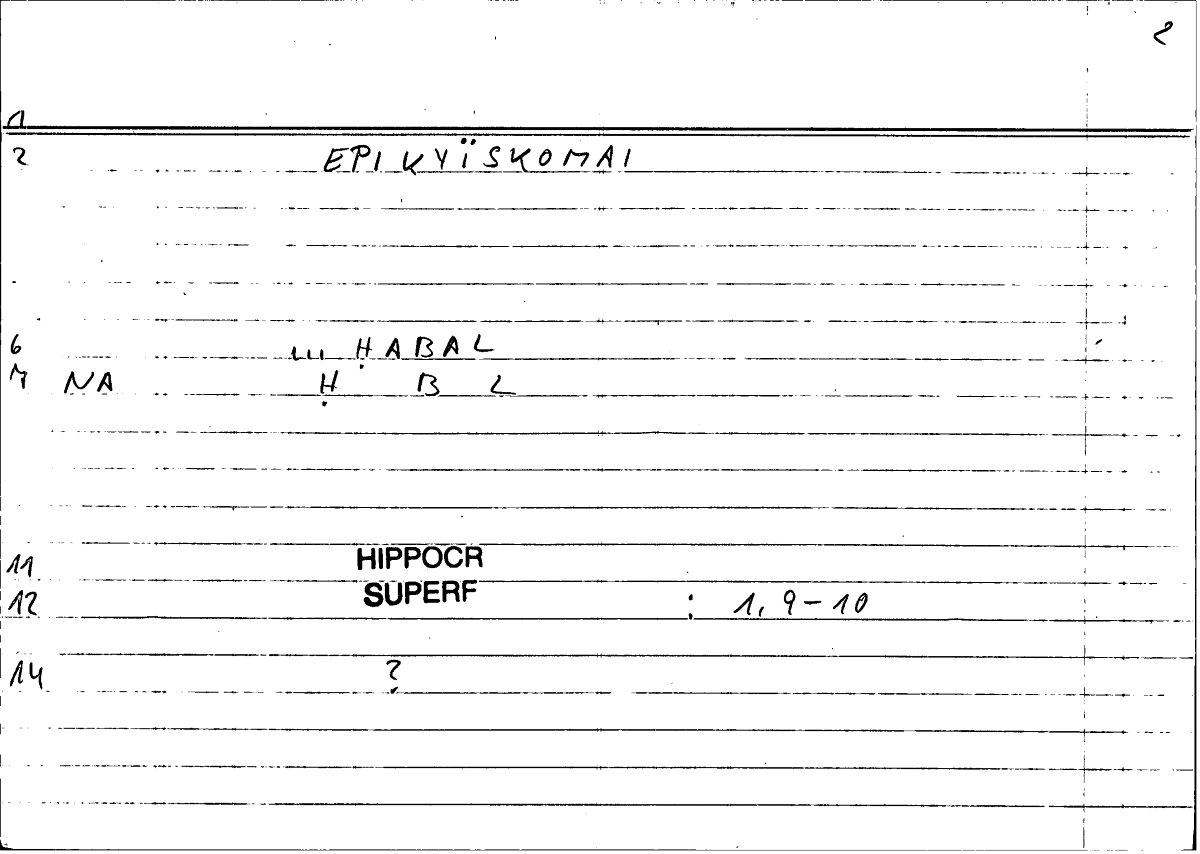 2
1
2 EPIKYÏSKOMAI
6 ... ḤABAL
7 NA Ḥ B L
11 HIPPOCR
12 SUPERF : 1, 9-10
14 ?